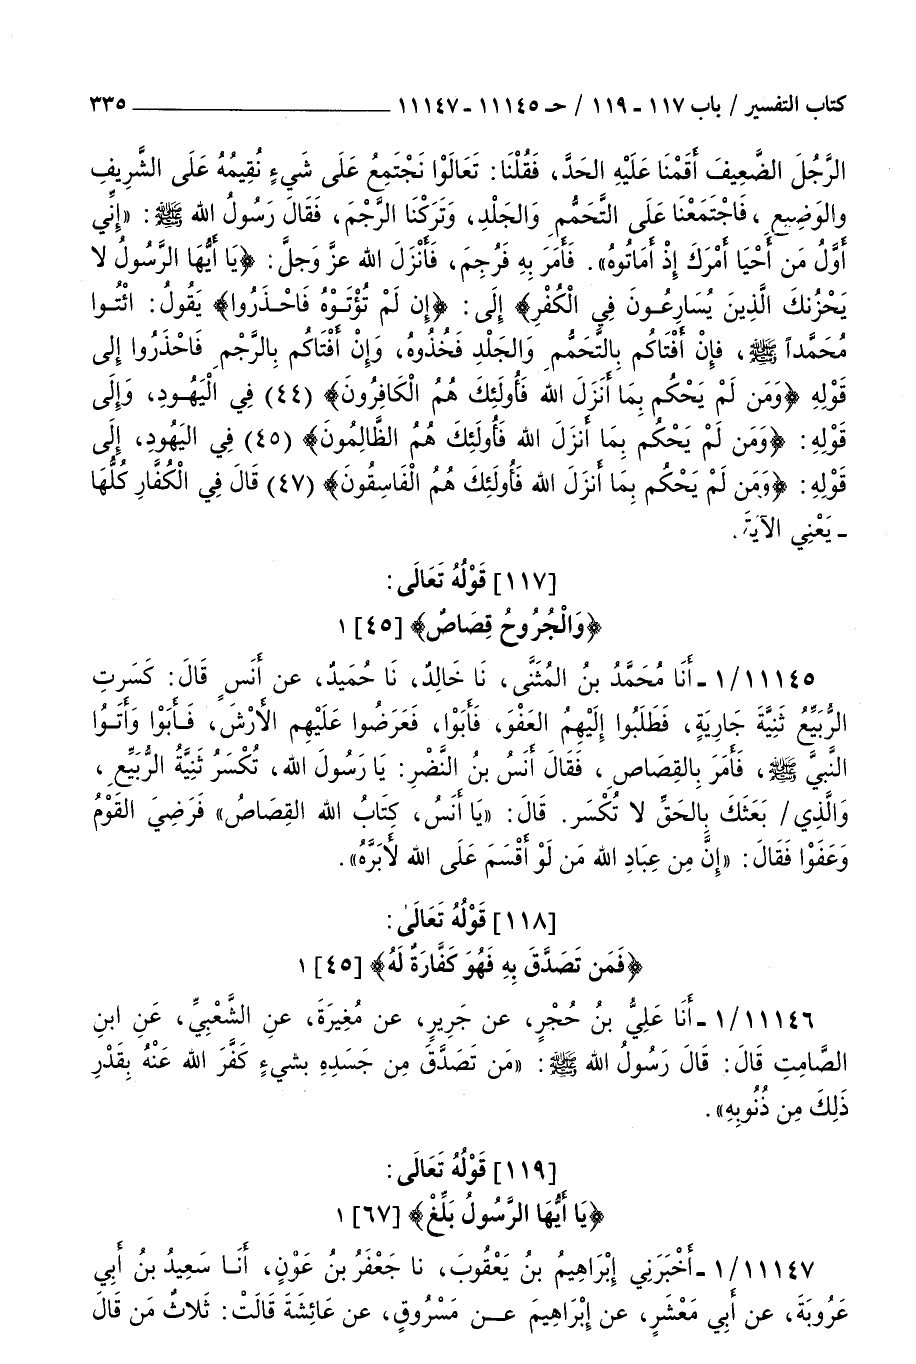 كتاب التفسير / باب ١١٧ - ١١٩ / حـ ١١١٤٥ - ١١١٤٧ ٣٣٥
الرَّجُلَ الضَّعِيفَ أَقَمْنَا عَلَيْهِ الحَدَّ، فَقُلْنَا: تَعَالَوْا نَجْتَمِعُ عَلَى شَيءٍ نُقِيمُهُ عَلَى الشَّرِيفِ
والوَضِيعِ، فَاجْتَمَعْنَا عَلَى التَّحَمُّمِ وَالجَلْدِ، وَتَرَكْنَا الرَّجْمَ، فَقَالَ رَسُولُ الله ﷺ: «إِنِّي
أَوَّلُ مَن أَحْيَا أَمْرَكَ إِذْ أَمَاتُوهُ». فَأَمَرَ بِهِ فَرُجِمَ، فَأَنْزَلَ الله عزَّ وَجلَّ: ﴿يَا أَيُّهَا الرَّسُولُ لا
يَحْزُنكَ الَّذِينَ يُسَارِعُونَ فِي الْكُفْرِ﴾ إِلَى: ﴿إِن لَمْ تُؤْتَوْهُ فَاحْذَرُوا﴾ يَقُولُ: ائْتُوا
مُحَمَّداً ﷺ، فإِنْ أَفْتَاكُم بِالتَّحَمُّمِ وَالجَلْدِ فَخُذُوهُ، وَإِنْ أَفْتَاكُم بِالرَّجْمِ فَاحْذَرُوا إلى
قَوْلِهِ ﴿وَمَن لَمْ يَحْكُم بِمَا أَنزَلَ الله فَأُولَئِكَ هُمُ الْكَافِرُونَ﴾ (٤٤) فِي الْيَهُودِ، وَإِلَى
قَوْلِهِ: ﴿وَمَن لَمْ يَحْكُم بِمَا أنزَلَ الله فَأُولَئِكَ هُمُ الظَّالِمُونَ﴾ (٤٥) فِي اليَهُودِ، إِلَى
قَوْلِهِ: ﴿وَمَن لَمْ يَحْكُم بِمَا أَنزَلَ الله فَأُولَئِكَ هُمُ الْفَاسِقُونَ﴾ (٤٧) قَالَ فِي الْكُفَّارِ كُلُّهَا
- يَعْنِي الآيَةَ.
[١١٧] قَوْلُهُ تَعَالَى:
﴿وَالْجُرُوحُ قِصَاصٌ﴾ [٤٥] ١
١١١٤٥/ ١ - أَنَا مُحَمَّدُ بنُ المُثَنَّى، نَا خَالِدٌ، نَا حُمَيدٌ، عن أَنَسٍ قَالَ: كَسَرَتِ
الرُّبَيِّعُ ثَنِيَّةَ جَارِيَةٍ، فَطَلَبُوا إِلَيْهِمُ العَفْوَ، فَأَبَوْا، فَعَرَضُوا عَلَيْهِم الأَرْشَ، فَأَبَوْا وَأَتَوُا
النبيَّ ﷺ، فَأَمَرَ بِالقِصَاصِ، فَقَالَ أَنَسُ بنُ النَّضْرِ: يَا رَسُولَ الله، تُكْسَرُ ثَنِيَّةُ الرُّبَيِّعِ،
وَالَّذِي/ بَعَثَكَ بِالحَقِّ لا تُكْسَر. قَالَ: «يَا أَنَسُ، كِتَابُ الله القِصَاصُ» فَرَضِيَ القَوْمُ
وَعَفَوْا فَقَالَ: «إِنَّ مِن عِبَادِ الله مَن لَوْ أَقْسَمَ عَلَى الله لأَبَرَّهُ».
[١١٨] قَوْلُهُ تَعَالَى:
﴿فَمَن تَصَدَّقَ بِهِ فَهُوَ كَفَّارَةٌ لَهُ﴾ [٤٥] ١
١١١٤٦/ ١ - أَنَا عَلِيُّ بنُ حُجْرٍ، عن جَرِيرٍ، عن مُغِيرَةَ، عنِ الشَّعْبِيِّ، عَنِ ابنِ
الصَّامِتِ قَالَ: قَالَ رَسُولُ الله ﷺ: «مَن تَصَدَّقَ مِن جَسَدِهِ بشيءٍ كَفَّرَ الله عَنْهُ بِقَدْرِ
ذَلِكَ مِن ذُنُوبِهِ».
[١١٩] قَوْلُهُ تَعَالَى:
﴿يَا أَيُّهَا الرَّسُولُ بَلِّغْ﴾ [٦٧] ١
١١١٤٧/ ١ - أَخْبَرَنِي إِبْرَاهِيمُ بنُ يَعْقُوبَ، نا جَعْفَرُ بنُ عَوْنٍ، أَنَا سَعِيدُ بنُ أَبِي
عَرُوبَةَ، عن أَبِي مَعْشَرٍ، عن إِبْرَاهِيمَ عن مَسْرُوقٍ، عن عَائِشَةَ قَالَتْ: ثَلاثٌ مَن قَالَ